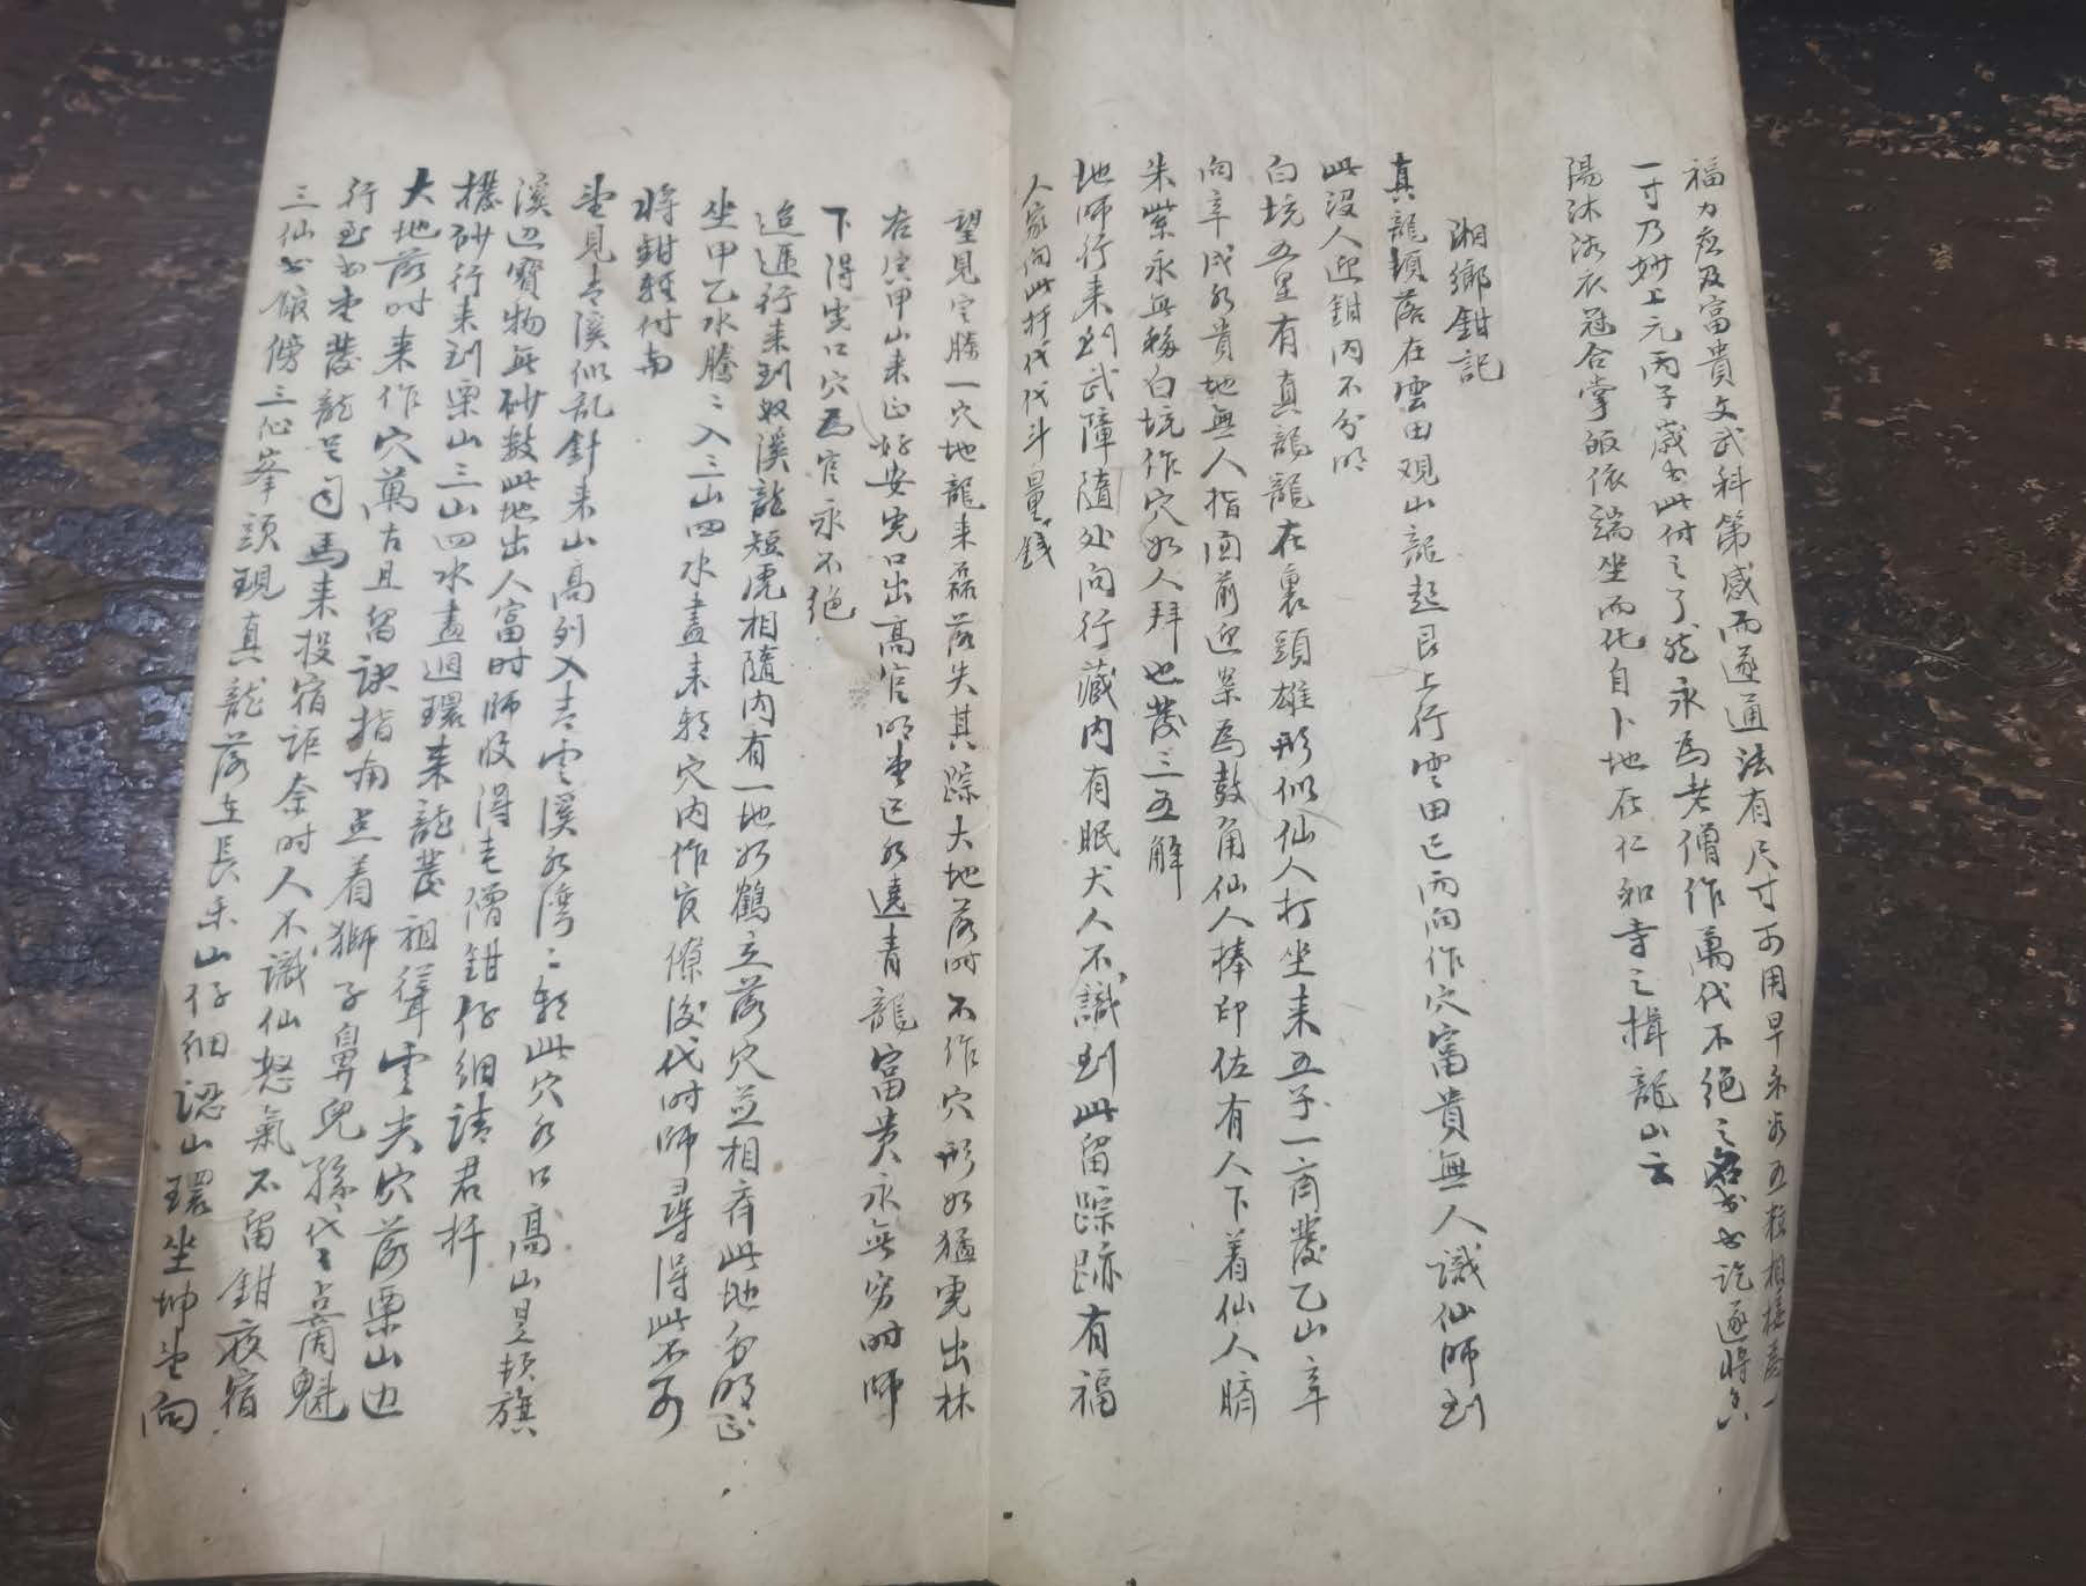 福力忞及富貴文武科第感而遂通法有尺寸可用早米炤五粒相接為一
一寸乃妙上元丙子歲書此付之了能永為老僧作萬代不絕之書訖遂將
陽沐浴衣冠合掌皈依端坐而化自卜地在仁和寺之揖龍山云
湘鄉鉗記
真龍頓落在雲田观山龍起艮上行雲田巳丙向作穴富貴無人識仙師到
此没人迎鉗內不分明
白坑五星有真龍龍在裏頭雄形似仙人打坐来五子一齊發乙山辛
向辛戌水貴地無人指面前迎案為鼓角仙人捧印佐有人下着仙人臍
朱紫永無移白坑作穴如人拜也發三五解
地師行来到武障隨处问行藏内有眠犬人不識到此留踪跡有福
人家向此扦代代斗量錢
望見定勝一穴地龍来磊落失其踪大地落时不作穴形如猛虎出林
在寅甲山来正好安虎口出高官明堂已水遶青龍富贵永無穷时師
下得虎口穴爲官永不绝
迢逓行来到双溪龍短虎相隨内有一地如鶴立落穴並相齐此地分明正
坐甲乙水騰〻入三山四水盡来朝穴内作官僚後代时師尋得此不可
將鉗輕付与
坐見青溪似乱針来山高列入青雲溪水湾〻朝此穴水口高山是頓旗
溪边寶物無砂数此地出人富时師收得老僧鉗仔細請君扦
摆砂行来到栗山三山四水盡迴環来龍發祖聳雲尖穴落栗山边
大地落时来作穴萬古且留訣指南点着獅子鼻兒孫代〻占商魁
行到書堂發龍是司馬来投宿詎奈时人不識仙怒氣不留鉗夜宿
三仙書舘傍三仙峯頭現真龍落在長禾山仔细認山環坐坤坐向